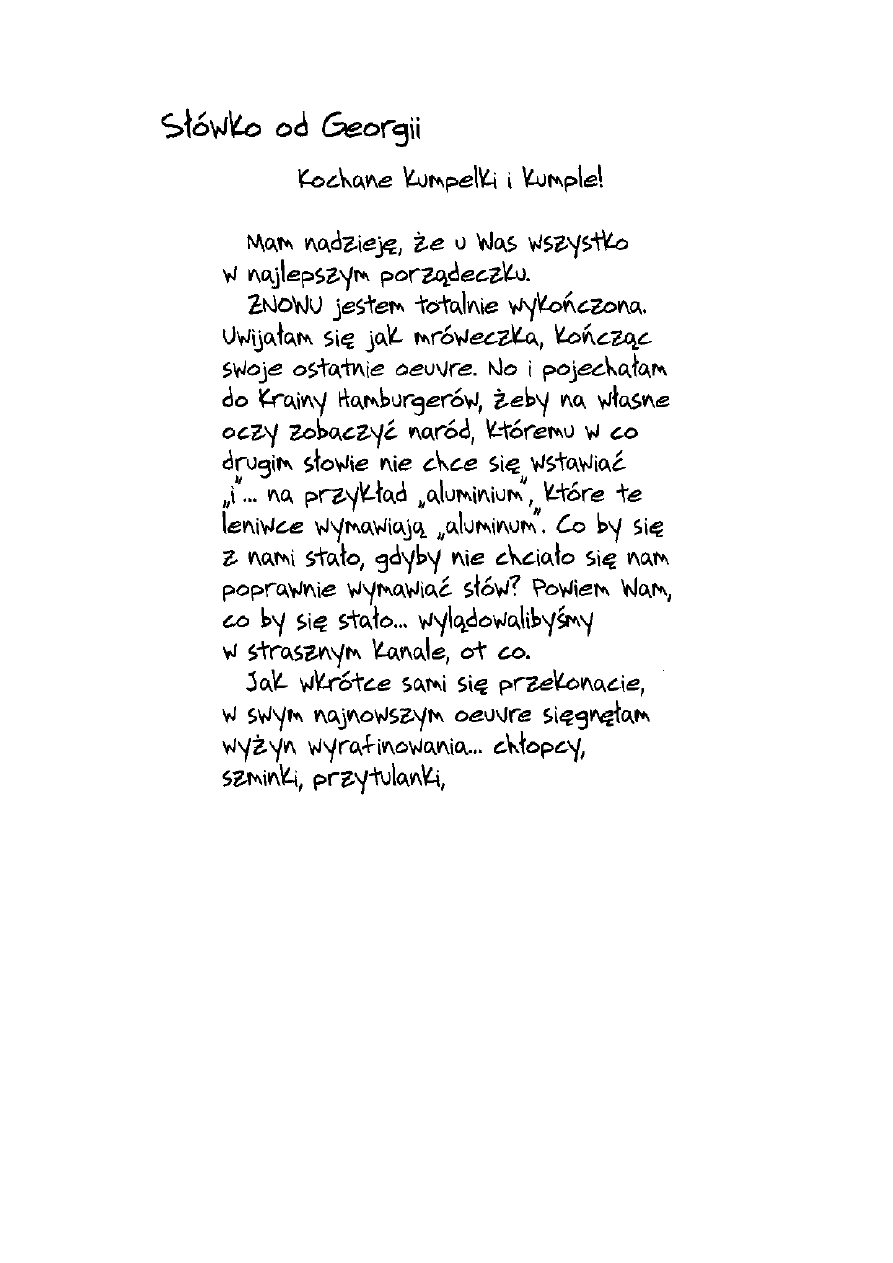 Słówko od Georgii
Kochane Kumpelki i Kumple!
Mam nadzieję, że u Was wszystko
w najlepszym porządeczku.
ZNOWU jestem totalnie wykończona.
Uwijałam się jak mróweczka, kończąc
swoje ostatnie oeuvre. No i pojechałam
do Krainy Hamburgerów, żeby na własne
oczy zobaczyć naród, któremu w co
drugim słowie nie chce się wstawiać
„i"... na przykład „aluminium", które te
leniwce wymawiają „aluminum". Co by się
z nami stało, gdyby nie chciało się nam
poprawnie wymawiać słów? Powiem Wam,
co by się stało... wylądowalibyśmy
w strasznym kanale, ot co.
Jak wkrótce sami się przekonacie,
w swym najnowszym oeuvre sięgnęłam
wyżyn wyrafinowania... chłopcy,
szminki, przytulanki,